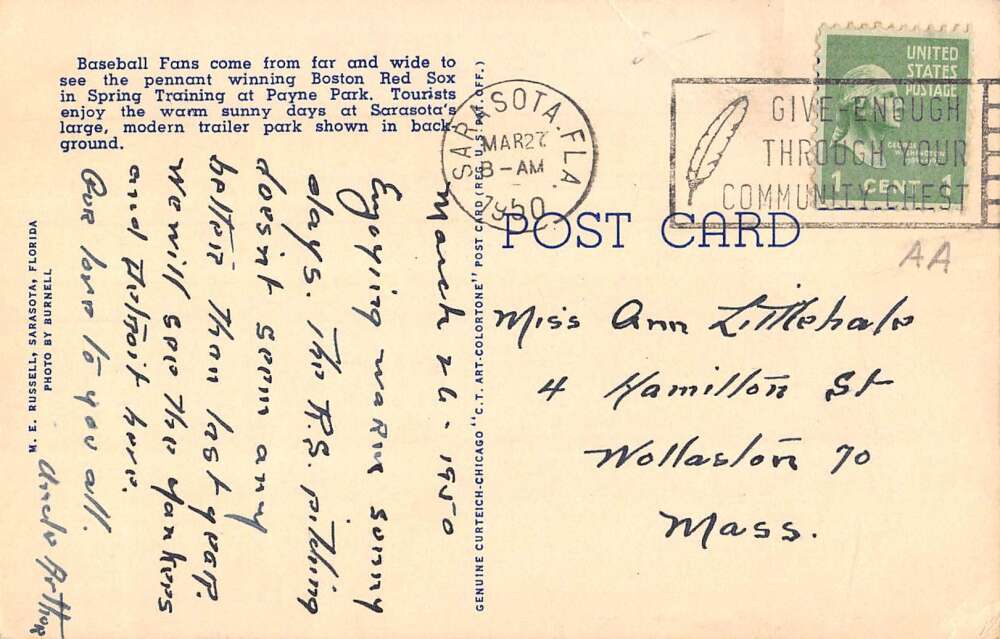 Baseball Fans come from far and wide to
see the pennant winning Boston Red Sox
in Spring Training at Payne Park. Tourists
enjoy the warm sunny days at Sarasota's
large, modern trailer park shown in back-
ground.
SARASOTA, FLA.
MAR 27
8-AM
1950
GIVE ENOUGH
THROUGH YOUR
COMMUNITY CHEST
UNITED
STATES
POSTAGE
GEORGE
WASHINGTON
1 CENT 1
POST CARD
AA
March 26 - 1950
Enjoying warm sunny
days. The R.S. pitching
doesnt seem any
better than last year.
We will see the Yankees
and Detroit here.
Our love to you all.
Uncle Arthur
Miss Ann Littlehale
4 Hamilton St
Wollaston 70
Mass.
M. E. RUSSELL, SARASOTA, FLORIDA
PHOTO BY BURNELL
GENUINE CURTEICH-CHICAGO "C. T. ART-COLORTONE" POST CARD (REG. U. S. PAT. OFF.)